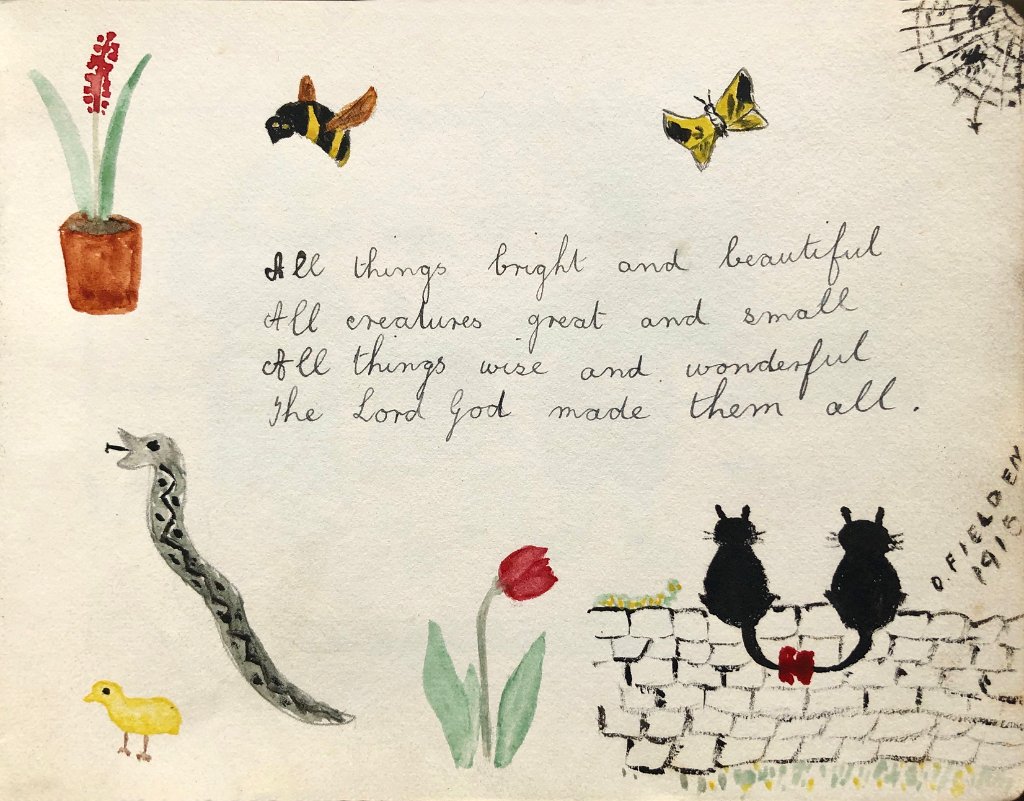 All things bright and beautiful
All creatures great and small
All things wise and wonderful
The Lord God made them all.
D. FIELDEN
1915